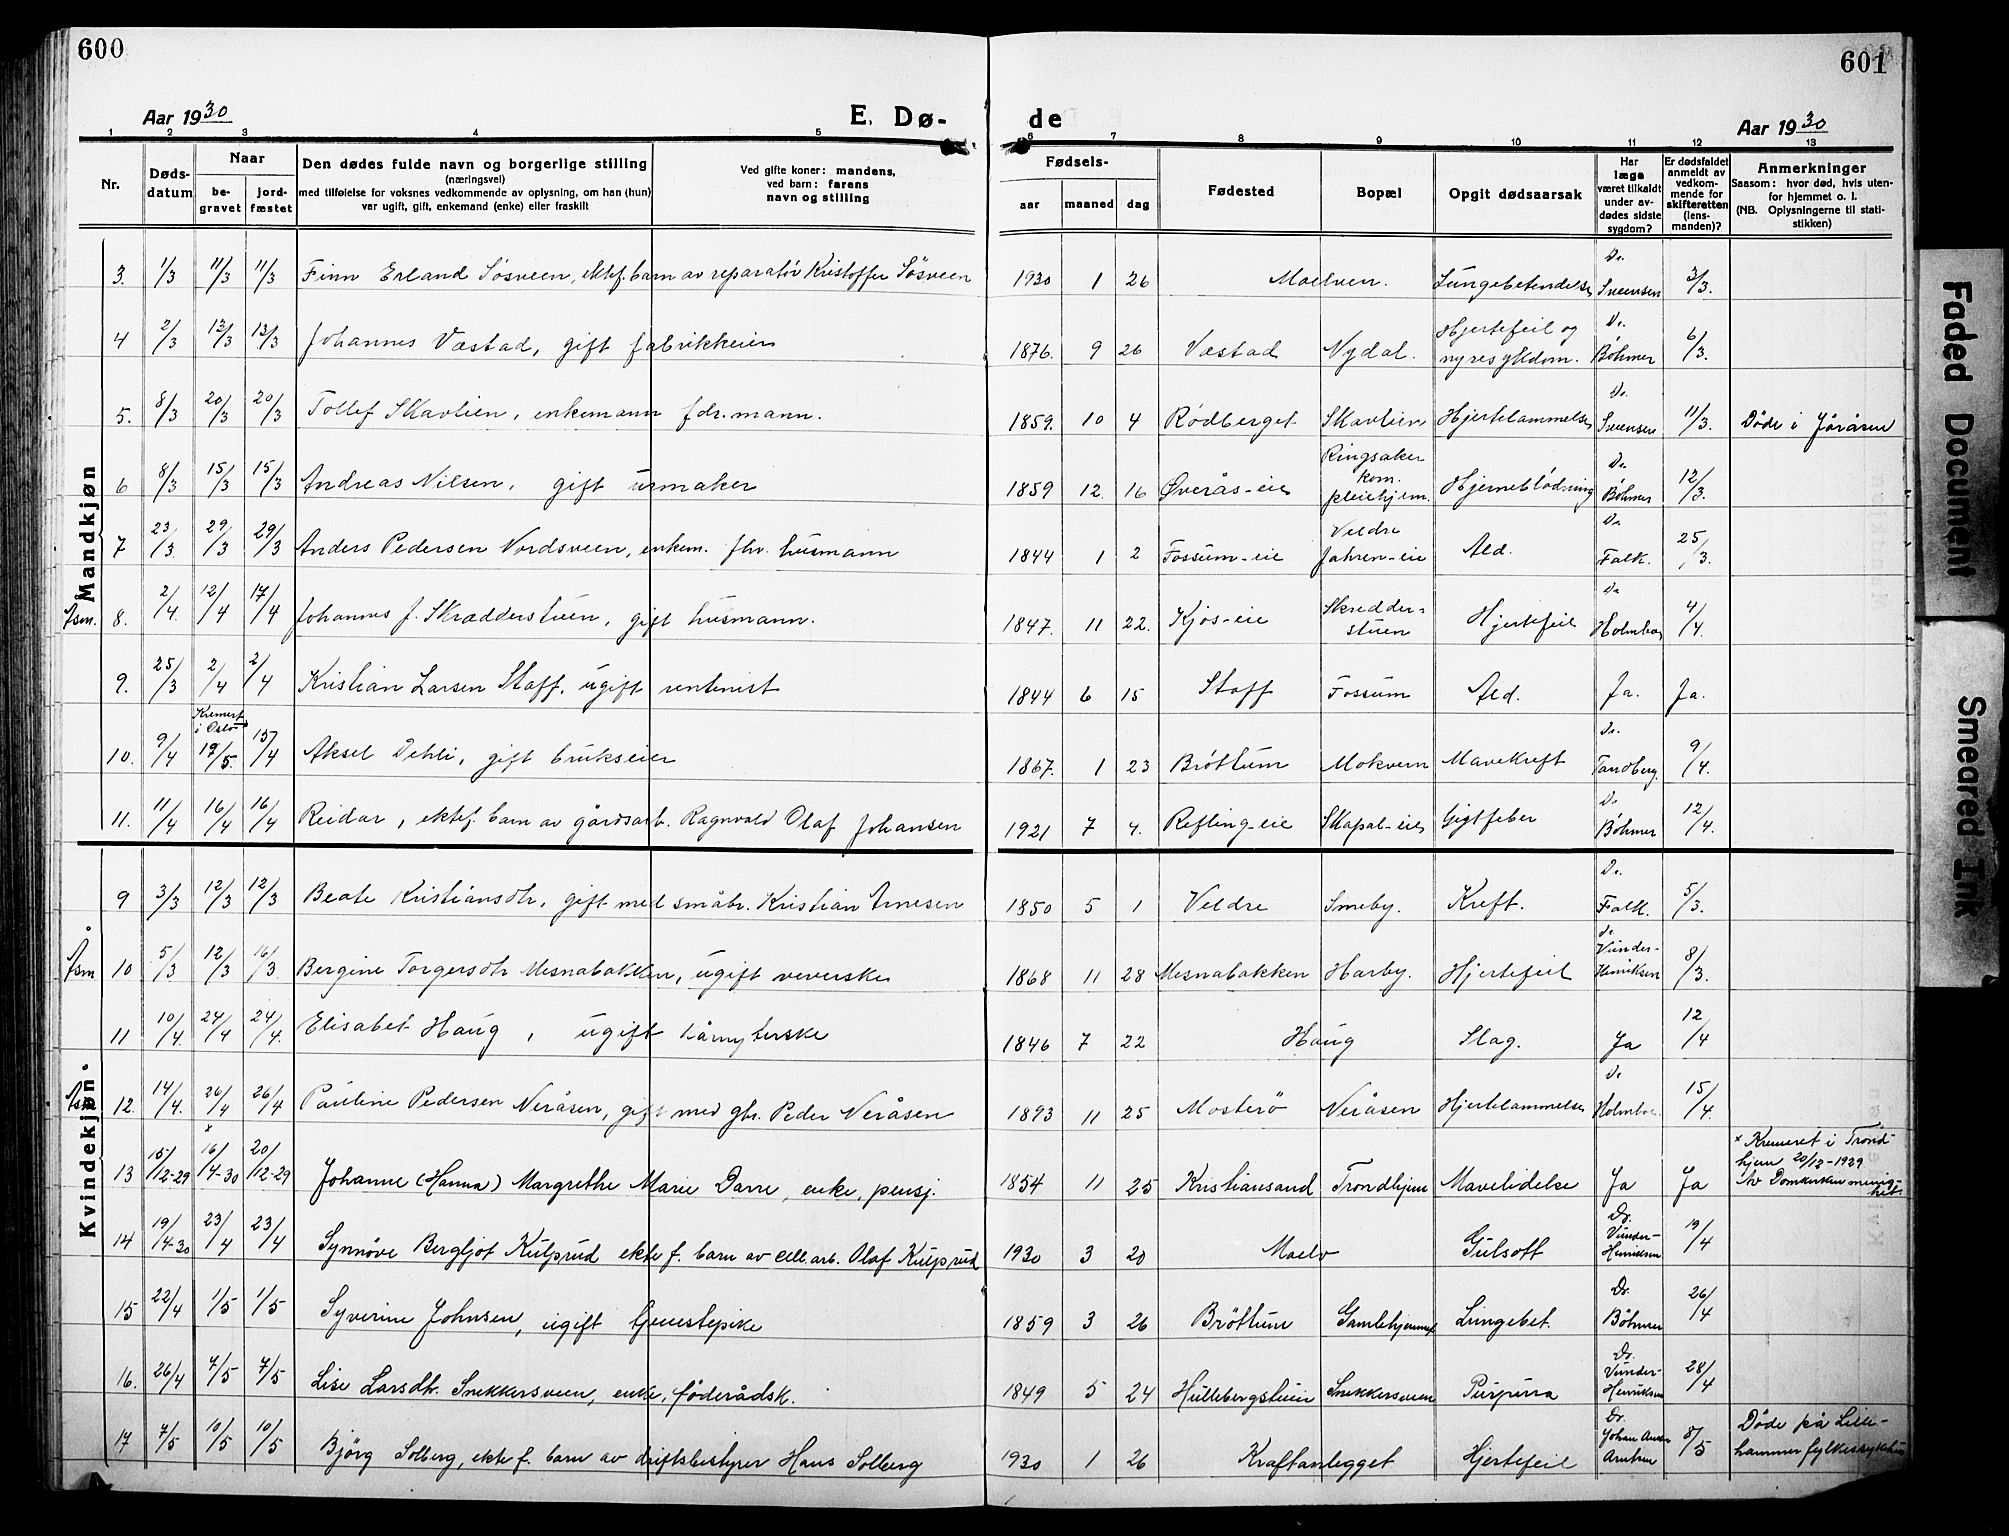 600
601
Aar 1930
E. Dø-
de
Aar 1930
1 2 3 4 5 6 7 8 9 10 11 12 13
Nr.
Døds-
datum
Naar
be-
gravet
jord-
fæstet
Den dødes fulde navn og borgerlige stilling
(næringsvei)
med tilføielse for voksnes vedkommende av oplysning, om han (hun)
var ugift, gift, enkemand (enke) eller fraskilt
Ved gifte koner: mandens,
ved barn: farens
navn og stilling
Fødsels-
aar maaned dag
Fødested
Bopæl
Opgit dødsaarsak
Har
læge
været tilkaldt
under av-
dødes sidste
sygdom?
Er dødsfaldet
anmeldt av
vedkom-
mende for
skifteretten
(lens-
manden)?
Anmerkninger
Saasom: hvor død, hvis uten-
for hjemmet o. l.
(NB. Oplysningerne til stati-
stikken)
Mandkjøn
3. 1/3 11/3 11/3 Finn Erland Søsveen, ektef. barn av reparatør Kristoffer Søsveen 1930 1 26 Moelven. Lungebetendelse Dr. Svensen 3/3.
4 2/3 13/3 13/3 Johannes Væstad, gift fabrikkeier 1876. 9 26 Væstad Nydal. Hjertefeil og nyresykdom. Dr. Böhmer 6/3.
5. 8/3 20/3 20/3 Tollef Skavlien, enkemann fdr. mann. 1859. 10 4 Rødberget Skavlien Hjertelammelse Dr. Svensen 11/3. Døde i Jøråsen
6 8/3 15/3 15/3 Andreas Nilsen, gift urmaker 1859 12. 16 Øverås-eie Ringsaker kom. pleiehjem. Hjerneblødning Dr. Böhmer 12/3.
7 23/3 29/3 29/3 Anders Pedersen Nordsveen, enkem. fhv. husmann 1844 1 2 Fossum-eie Veldre Jahren-eie Ald. Dr. Falk. 25/3.
8. 2/4. 12/4 17/4 Johannes J. Skrædderstuen, gift husmann. 1847. 11 22. Kjos-eie Skredder-stuen Hjertefeil Dr. Holmboe 4/4.
9. 25/3 2/4 2/4 Kristian Larsen Staff, ugift rentenist 1844 6 15 Staff Fossum Ald. Ja. Ja.
10. 9/4 Kremert i Oslo 17/5. 15/4 Aksel Dehli, gift brukseier 1867. 1 23 Brøttum Mokvern Mavekreft Dr. Tandberg. 9/4.
11. 11/4 16/4 16/4 Reidar, ektef. barn av gårdsarb. Ragnvald Olaf Johansen 1921 7 4. Refling-eie Skapal-eie Gigtfeber Dr. Böhmer 12/4.
Kvindekjøn.
9 3/3 12/3 12/3 Beate Kristiansdtr, gift med småbr. Kristian Arnesen 1850 5 1 Veldre Smeby. Kreft. Dr. Falk. 5/3.
10 5/3 12/3 16/3. Bergine Torgersdtr Mesnabakken, ugift veverske 1868 11 28 Mesnabakken Harby. Hjertefeil dr Vunder-Henriksen 8/3.
11 10/4. 24/4 24/4. Elisabet Haug, ugift håndyterske 1846 7 22 Haug Slag. Ja 12/4
12. 14/4. 26/4 26/4 Pauline Pedersen Neråsen, gift med gbr. Peder Neråsen 1893 11 25 Mosterö Neråsen Hjertelammelse Dr Holmboe 15/4.
13 15/12-29 x 16/4-30 20/12-29 Johanne (Hanna) Margrethe Marie Darre, enke, pensj. 1854 11 25 Kristiansand Trondhjem Mavelidelse Ja Ja x Kremeret i Trond-
hjem 20/12-1929
Av Domkirken menig-
het.
14 19/4-30 23/4 23/4 Synnöve Bergljot Kulprud ekte f. barn av cell.arb. Olaf Kulprud 1930 3 20 Moelv Gulsott Dr. Vunder-Henriksen 19/4
15 22/4 1/5 1/5 Syverine Johnsen, ugift tjenestepike 1859 3 26 Bröttum Gamlehjemmet Lungebet. Dr. Böhmer 26/4
16. 26/4 7/5 7/5 Lise Larsdtr. Snekkersveen, enke, föderådsk. 1849 5 24 Hullebergstuen Snekkersveen Purpura Dr. Vunder-Henriksen 28/4
17 7/5 10/5 10/5 Björg Solberg, ekte f. barn av driftsbestyrer Hans Solberg 1930 1 26 Kraftanlegget Hjertefeil Dr. Johan Arntzen 8/5 Döde på Lille-
hammer fylkessykehus
Faded Document
Smeared Ink